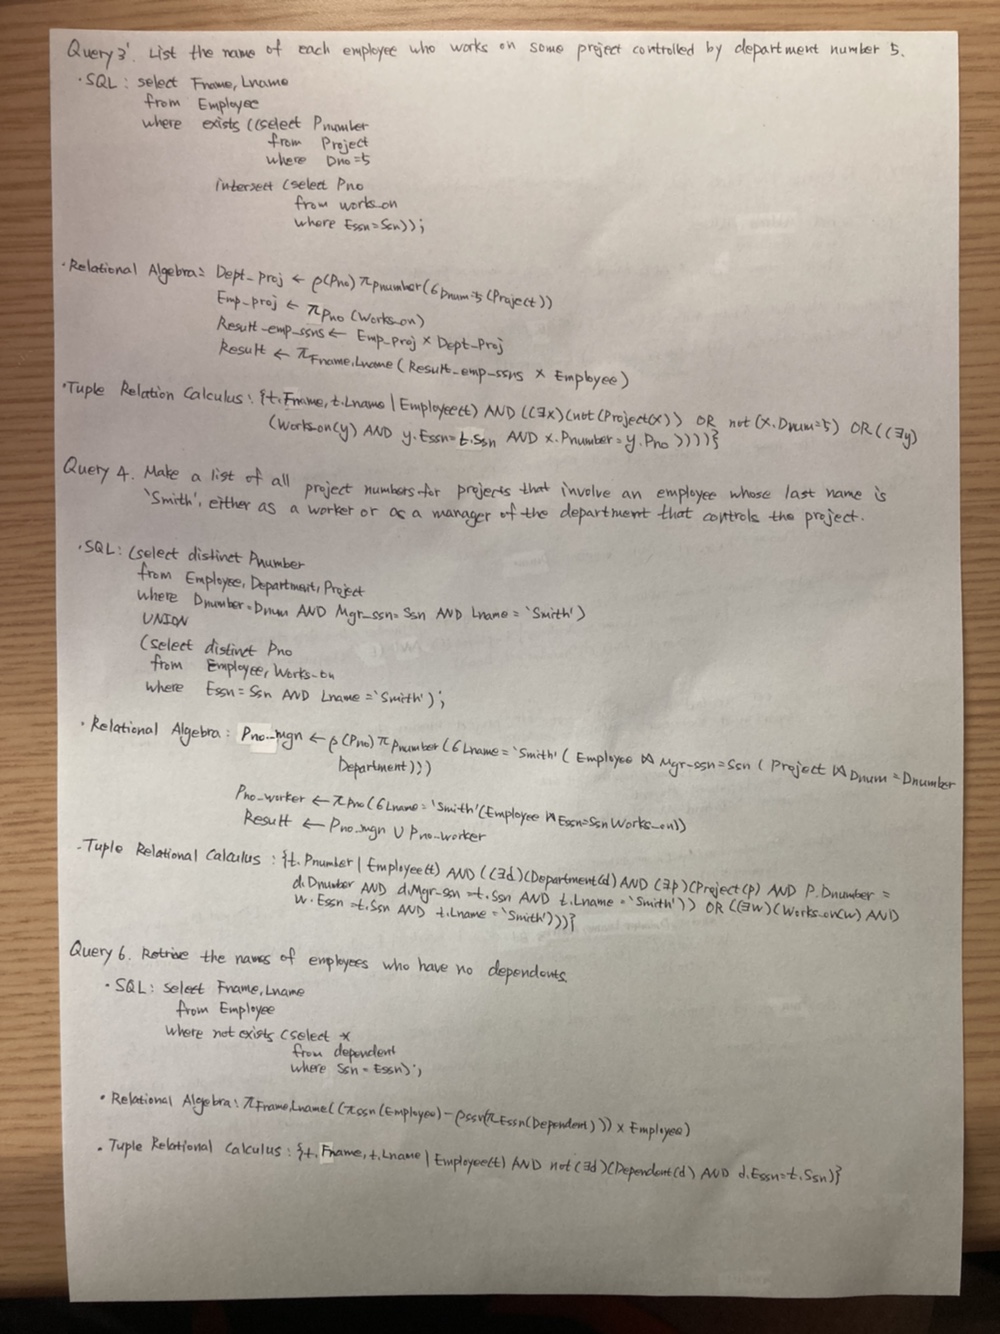 Query 3'. List the name of each employee who works on some project controlled by department number 5.
· SQL : select Fname, Lname
from Employee
where exists ((select Pnumber
from Project
where Dno = 5
intersect (select Pno
from works_on
where Essn = Ssn));
· Relational Algebra : Dept_Proj ← ρ(Pno) π Pnumber (σ Dnum=5 (Project))
Emp_proj ← π Pno (Works_on)
Result_emp_ssns ← Emp_Proj × Dept_Proj
Result ← π Fname, Lname (Result_emp_ssns × Employee)
· Tuple Relation Calculus : {t.Fname, t.Lname | Employee(t) AND ((∃x)(not(Project(x)) OR not (x.Dnum=5) OR ((∃y)
(Works_on(y) AND y.Essn = t.Ssn AND x.Pnumber = y.Pno ))))}
Query 4. Make a list of all project numbers for projects that involve an employee whose last name is
'Smith', either as a worker or as a manager of the department that controls the project.
· SQL : (select distinct Pnumber
from Employee, Department, Project
where Dnumber = Dnum AND Mgr_ssn = Ssn AND Lname = 'Smith')
UNION
(select distinct Pno
from Employee, Works_on
where Essn = Ssn AND Lname = 'Smith');
· Relational Algebra : Pno_mgn ← ρ(Pno) π Pnumber (σ Lname = 'Smith' ( Employee ⋈ Mgr-ssn = Ssn ( Project ⋈ Dnum = Dnumber
Department)))
Pno_worker ← π Pno (σ Lname = 'Smith' (Employee ⋈ Essn=Ssn Works_on))
Result ← Pno_mgn ∪ Pno_worker
- Tuple Relational Calculus : {t.Pnumber | Employee(t) AND ((∃d)(Department(d) AND (∃p)(Project(p) AND P.Dnumber =
d.Dnumber AND d.Mgr-ssn = t.Ssn AND t.Lname = 'Smith')) OR ((∃w)(Works_on(w) AND
w.Essn = t.Ssn AND t.Lname = 'Smith')))}
Query 6. Retrive the names of employees who have no dependents.
· SQL : select Fname, Lname
from Employee
where not exists (select *
from dependent
where Ssn = Essn);
· Relational Algebra : π Fname, Lname ((π ssn (Employee) - ρ ssn (π Essn (Dependent))) × Employee)
· Tuple Relational Calculus : {t.Fname, t.Lname | Employee(t) AND not (∃d)(Dependent(d) AND d.Essn = t.Ssn)}